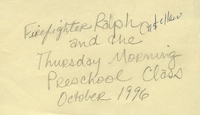 Firefighter Ralph
and the
Thursday Morning
Preschool Class
October 1996